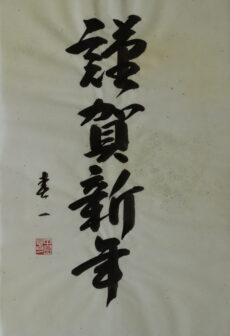 謹賀新年
春一